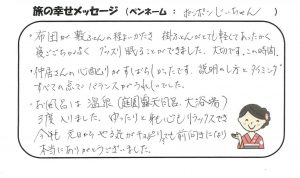 旅の幸せメッセージ (ペンネーム:ポンポンじいちゃん)
・布団が敷ふとんの程よいかたさ 掛ふとんがとても軽くてあったかく
寝ごごちがよく グッスリ眠ることができました。大切です、この時間。
・仲居さんの心配りがすばらしかったです。説明のし方とタイミング
すべての点でバランスがうれしいでした。
・お風呂は温泉(庭園露天風呂、大浴場)
3度入りました。ゆったりと身も心もリラックスでき
今年も元日からやる気がでて前向きになり
本当にありがとうございました。